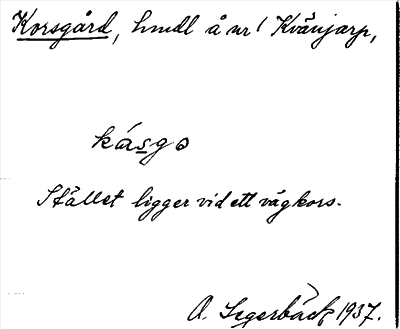 Korsgård, hmdl å nr 1 Kvänjarp,
kásgo
Stället ligger vid ett vägkors.
A. Segerbäck 1937.